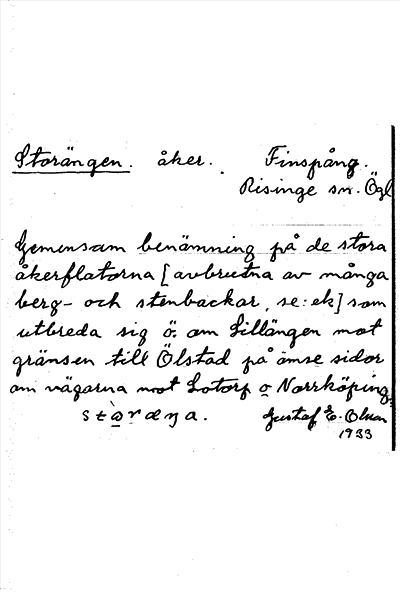 Storängen. åker. Finspång.
Risinge sn. Ögl
Gemensam benämning på de stora
åkerflatorna [avbrutna av många
berg- och stenbackar, se: ek] som
utbreda sig ö. om Lillängen mot
gränsen till Ölstad på ömse sidor
om vägarna mot Lotorp o Norrköping.
stò̱ræŋa. Gustaf E. Olsson
1933